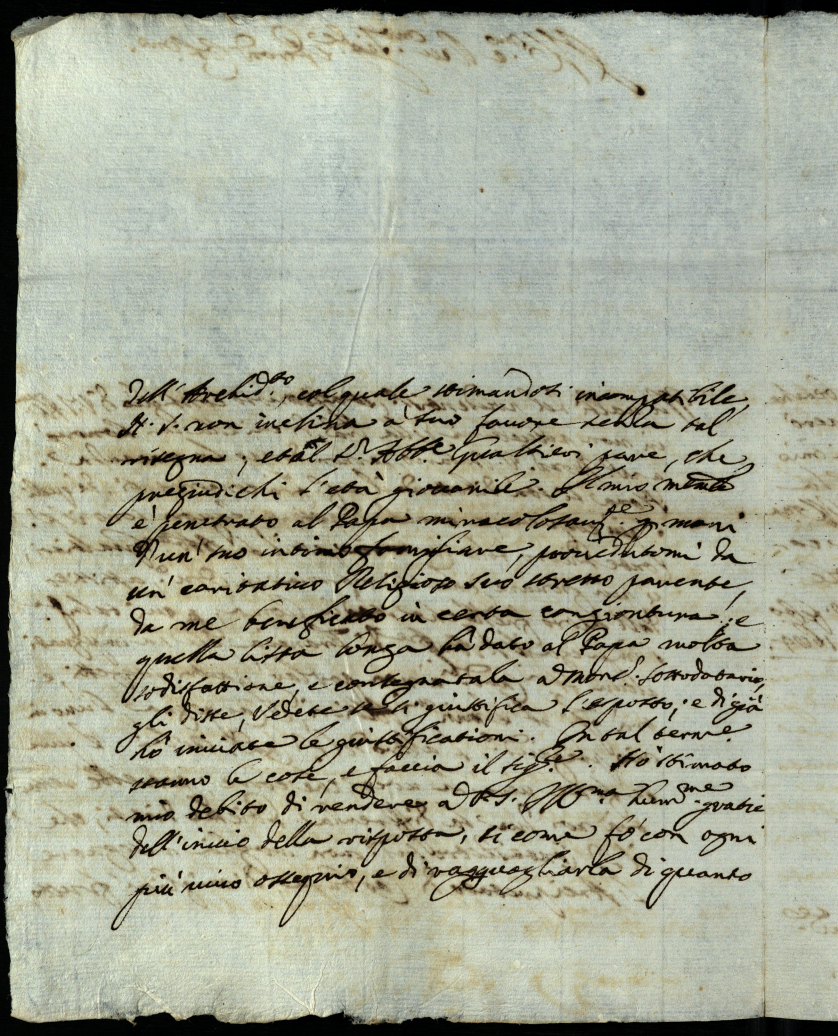 dell'Archid.to, col quale stimandosi incompatibile,
N. S. non inclina a suo favore senza tal
rinegna; et al S.r Abb.e Gualtieri pare, che
pregiudichi l'età giovanile. Il mio
è penetrato al Papa miracolosam.te p mani
d'un' suo intimo famigliare, procedutomi da
un' caritativo Religioso suo stretto parente,
da me beneficato in certa congiontura; e
quella lista longa hà dato al Papa molta
sodisfattione, e consegnatala a Mons.r Sottodatario,
gli disse, Vedete se si giustifica l'esposto; e di già
hò iniziate le giustificationi. In tal terme
stanno le cose, e faccia il Sig.re. Hò stimato
mio debito di rendere a V. S. Ill.ma hum.me gratie
dell'inuio della risposta, si come fò con ogni
più uiuo ossequio, e di ragguagliarla di quanto